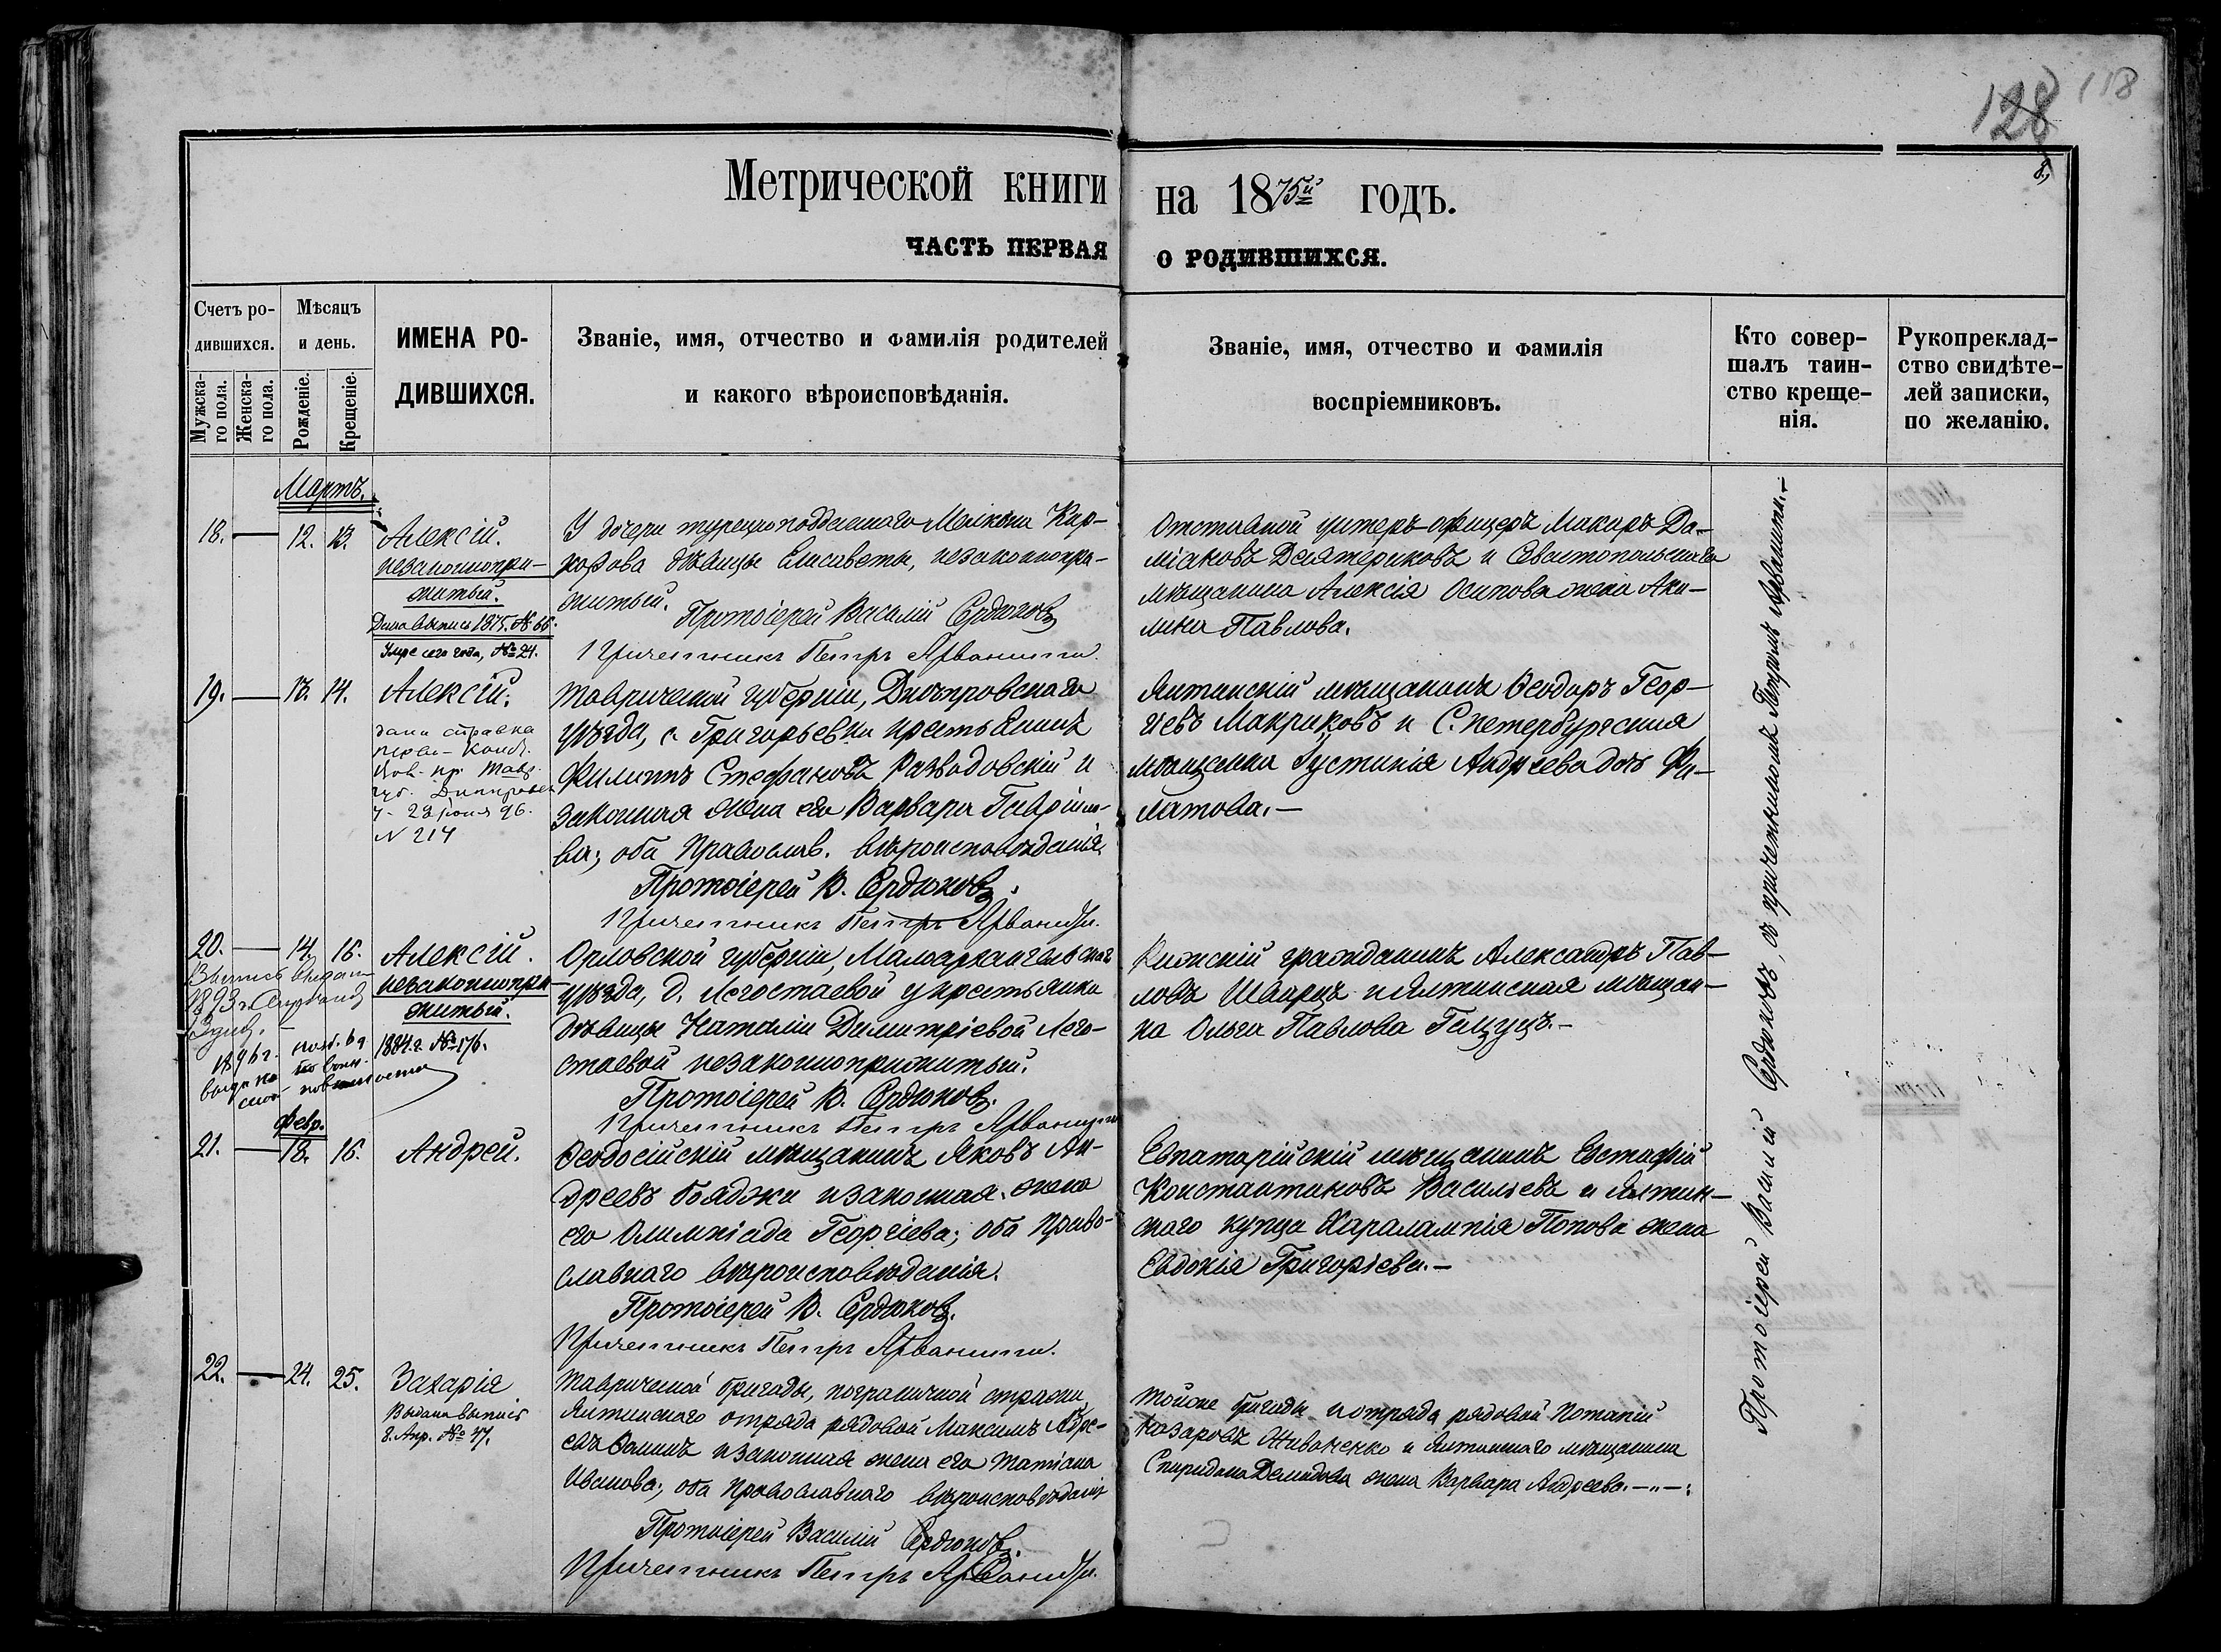 128 118
8.
Метрической книги на 1875й годъ.
ЧАСТЬ ПЕРВАЯ О РОДИВШИХСЯ.
Счетъ ро-
дившихся.
Мужска-
го пола.
Женска-
го пола.
Мѣсяцъ
и день.
Рожденіе.
Крещеніе.
ИМЕНА РО-
ДИВШИХСЯ.
Званіе, имя, отчество и фамилія родителей
и какого вѣроисповѣданія.
Званіе, имя, отчество и фамилія
воспріемниковъ.
Кто совер-
шалъ таин-
ство креще-
нія.
Рукоприклад-
ство свидѣте-
лей записки,
по желанію.
Мартъ.
18. — 12. 13.
Алексій.
незаконнопри-
житый.
Дана выпись 1875. № 66.
Умре сего года, № 21.
У дочери турецкоподданнаго
дѣвицы Елисаветы, незаконнопри-
житый.
Протоіерей Василій Сердюковъ
Причетникъ Петръ Арванити.
Отставной унтеръ-офицеръ Макаръ Да-
міановъ Дехтериковъ и Севастопольскаго
мѣщанина Алексія Осипова жена Аки-
лина Павлова.
19. — 13. 14.
Алексій.
дана справка
Тавр.
губ.
23 іюня 96.
N 214
Таврической губерніи, Днѣпровскаго
уѣзда, с. Григорьевки крестьянинъ
Филиппъ Стефановъ Разводовскій и
законная жена его Варвара Гавріило-
ва; оба Православ. вѣроисповѣданія.
Протоіерей В. Сердюковъ.
Причетникъ Петръ Арванити.
Ялтинскій мѣщанинъ Ѳеодоръ Геор-
гіевъ Макриковъ и С.петербургская
мѣщанка Іустинія Андреева дочь Фи-
латова.—
20. — 14. 16.
Алексій.
незаконнопри-
житый.
1884 г. № 176.
Выпись выдана
1893 г.
повинности
Орловской губерніи, Малоархангельскаго
уѣзда, д. Легостаевой у крестьянки
дѣвицы Наталіи Димитріевой Лего-
стаевой незаконноприжитый.
Протоіерей В. Сердюковъ.
Причетникъ Петръ Арванити
гражданинъ Александръ Пав-
ловъ Шварцъ и Ялтинская мѣщан-
ка Ольга Павлова
Февр.
21. — 18. 16.
Андрей.
Ѳеодосійскій мѣщанинъ Яковъ Ан-
дреевъ Бояджи и законная жена
его Олимпіада Георгіева; оба Право-
славнаго вѣроисповѣданія.
Протоіерей В. Сердюковъ.
Причетникъ Петръ Арванити.
Евпаторійскій мѣщанинъ Евстафій
Константиновъ Васильевъ и Ялтин-
скаго купца Харалампія Попова жена
Евдокія Григоріева.—
22. — 24. 25.
Захарія
Выдана выпись
8. Апр. № 77.
Таврической бригады, пограничной стражи
Ялтинскаго отряда рядовой Максимъ Андре-
евъ Ѳоминъ и законная жена его Татіана
Иванова; оба Православнаго вѣроисповѣданія
Протоіерей Василій Сердюковъ.
Причетникъ Петръ Арванити.
Той же бригады и отряда рядовой Потапій
Назаровъ Живаненко и Ялтинскаго мѣщанина
Спиридона Демидова жена Варвара Андреева.—„—:
Протоіерей Василій Сердюковъ, съ причетникомъ Петромъ Арванити.—